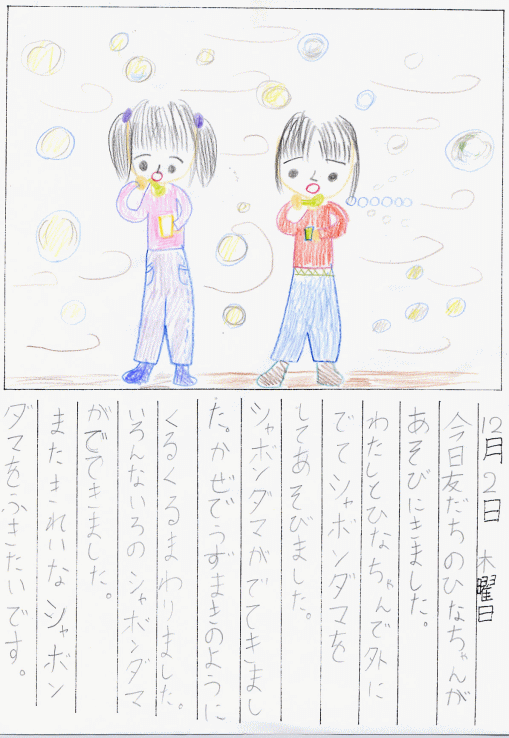 12月2日 木曜日
今日友だちのひなちゃんが
あそびにきました。
わたしとひなちゃんで外に
でてシャボンダマを
してあそびました。
シャボンダマがでてきまし
た。かぜでうずまきのように
くるくるまわりました。
いろんないろのシャボンダマ
がでできました。
またきれいなシャボン
ダマをふきたいです。